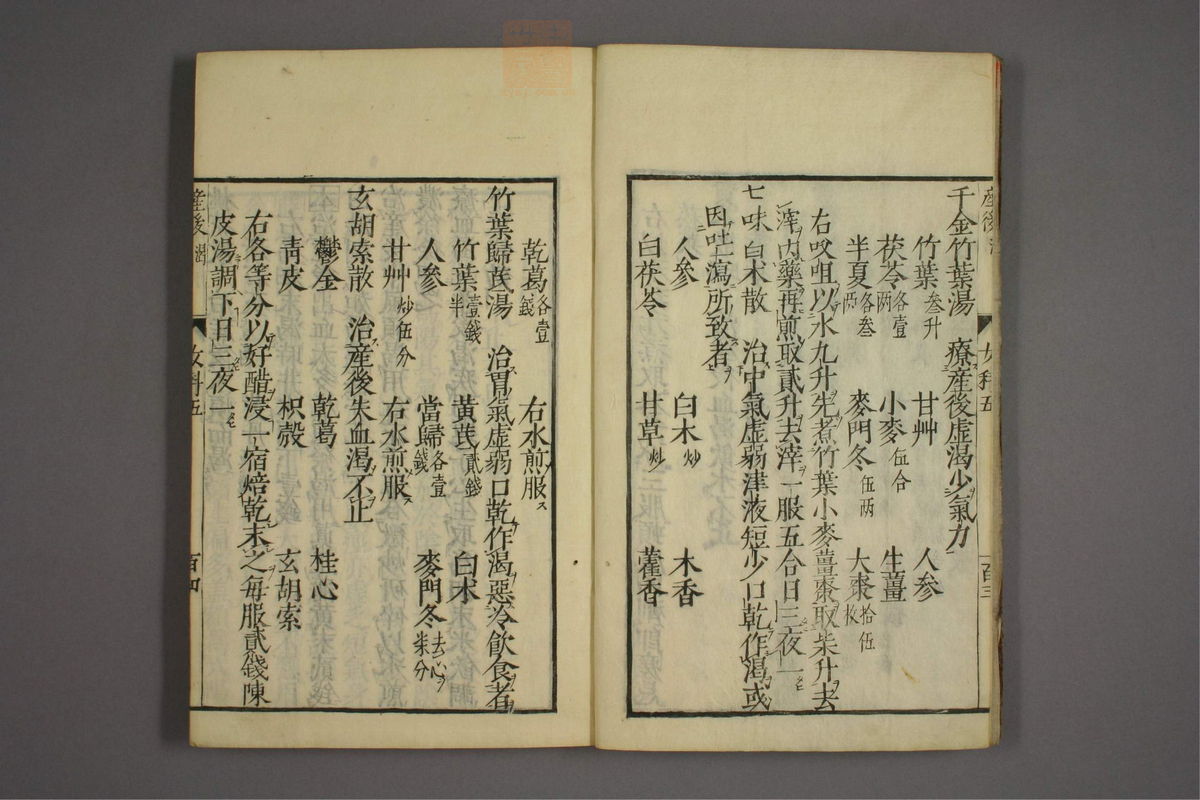 千金竹葉湯　療産後虚渇少氣力
竹葉叁升　甘艸　人参
茯苓各壹兩　小麥伍合　生薑
半夏各叁兩　麥門冬伍两　大棗拾伍枚
右㕮咀以水九升先煮竹葉小麥薑棗取柒升去
滓内藥再煎取貳升去滓一服五合日三夜一
七味白术散　治中氣虚弱津液短少口乾作渇或
因吐瀉所致者
人參　白术炒　木香
白茯苓　甘草炒　藿香
産後
女科五
百三
乾葛各壹錢　右水煎服
竹葉歸芪湯　治胃氣虚弱口乾作渇惡冷飲食者
竹葉壹錢半　黄芪貳錢　白术
人參　當歸各壹錢　麥門冬去心柒分
甘艸炒伍分　右水煎服
玄胡索散　治産後失血渇不止
鬱金　乾葛　桂心
青皮　枳殻　玄胡索
右各等分以好醋浸一宿焙乾末之毎服貳錢陳
皮湯調下日三夜一
産後
女科五
百四